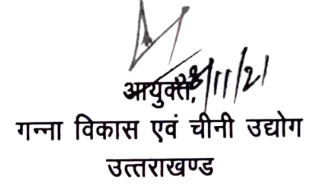 आयुक्त,
गन्ना विकास एवं चीनी उद्योग
उत्तराखण्ड